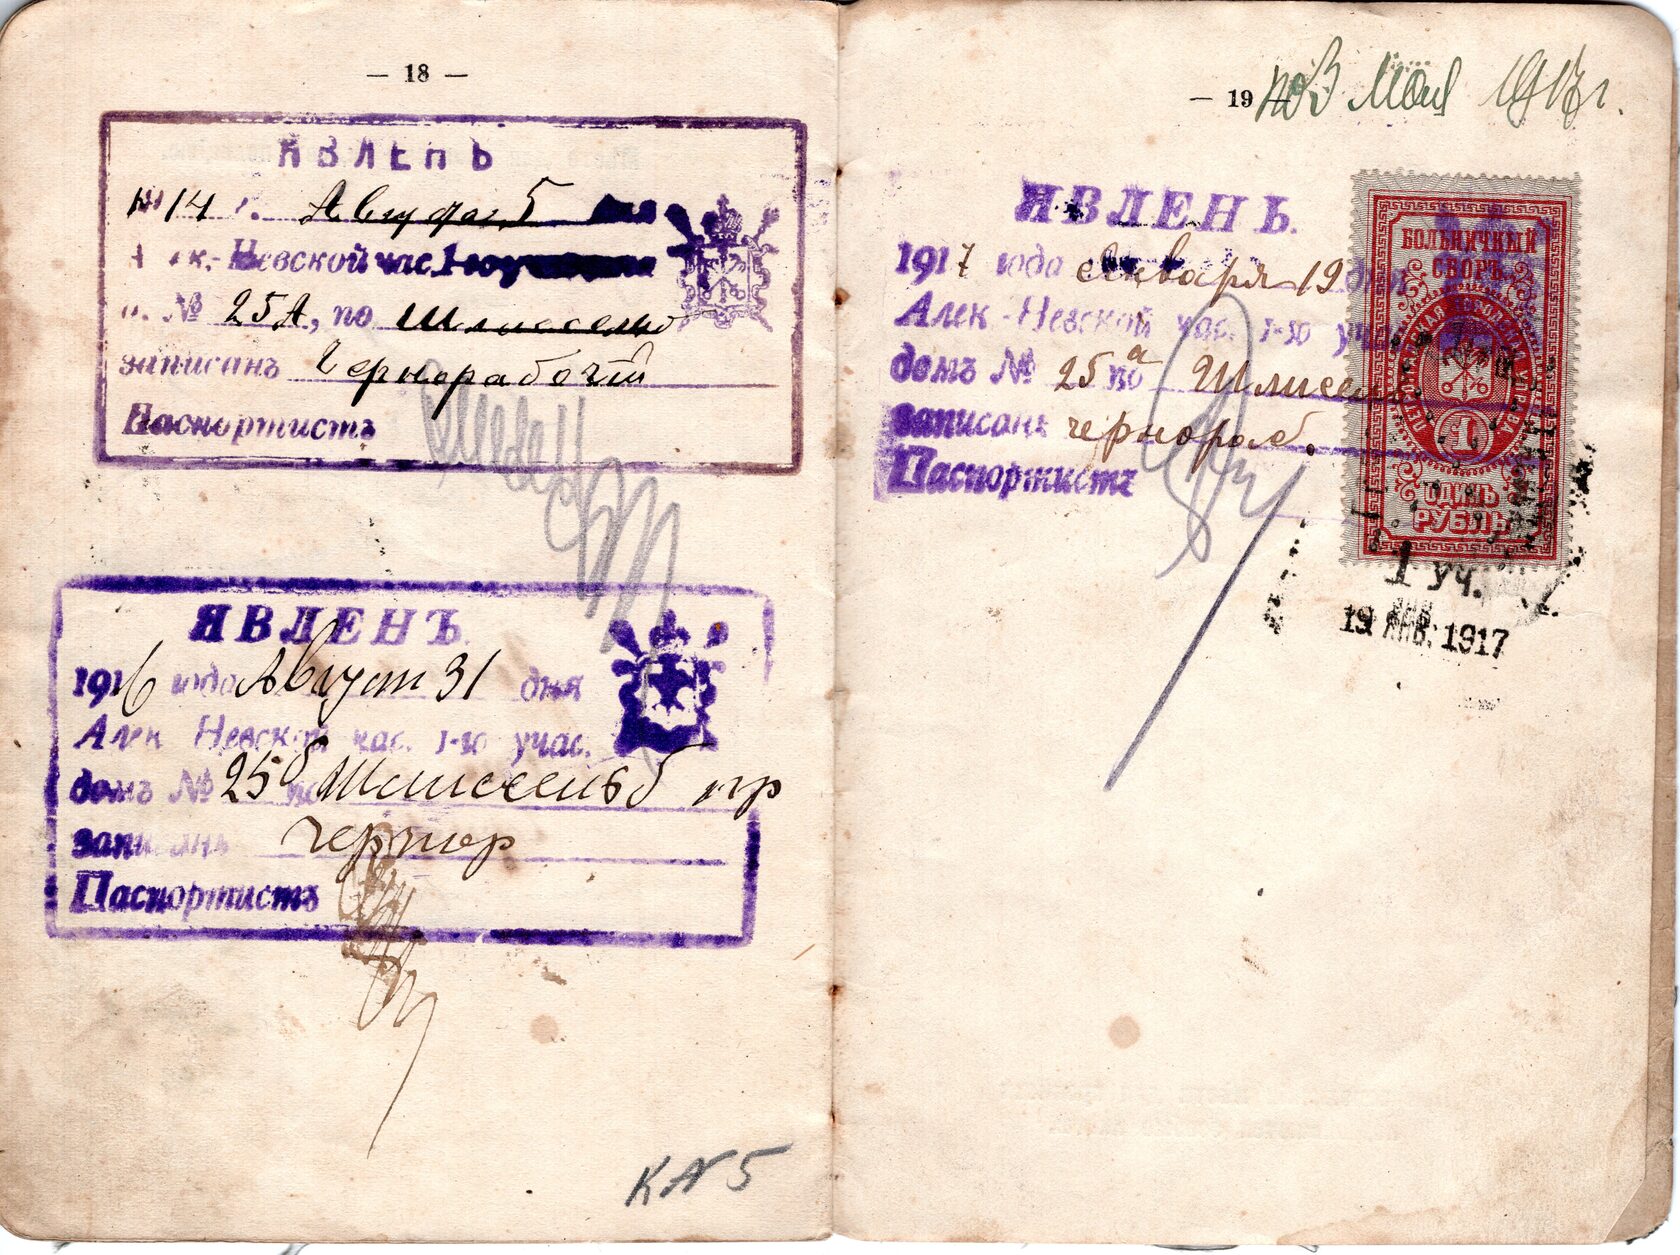 — 18 —
ЯВЛЕНЪ
1914 г. Августа 5 дня
Алек.-Невской час. 1-го
д. № 25А, по Шлиссельб
записанъ Чернорабочій
Паспортистъ
ЯВЛЕНЪ
1916 года Август 31 дня
Алек Невской час. 1-го учас.
домъ № 25б по Шлиссельб пр
записанъ чернор
Паспортистъ
К № 5
— 19 —
по 3 Мая 1917 г.
ЯВЛЕНЪ.
1917 года Января 19 дня
Алек.-Невской час. 1-го учас
домъ № 25а по Шлиссель
записанъ чернораб.
Паспортистъ
БОЛЬНИЧНЫЙ
СБОРЪ
ПЕТРОГРАДСКАЯ ГОРОДСКАЯ УПРАВА
1
ОДИНЪ
РУБЛЬ
1 уч.
19 ЯНВ. 1917